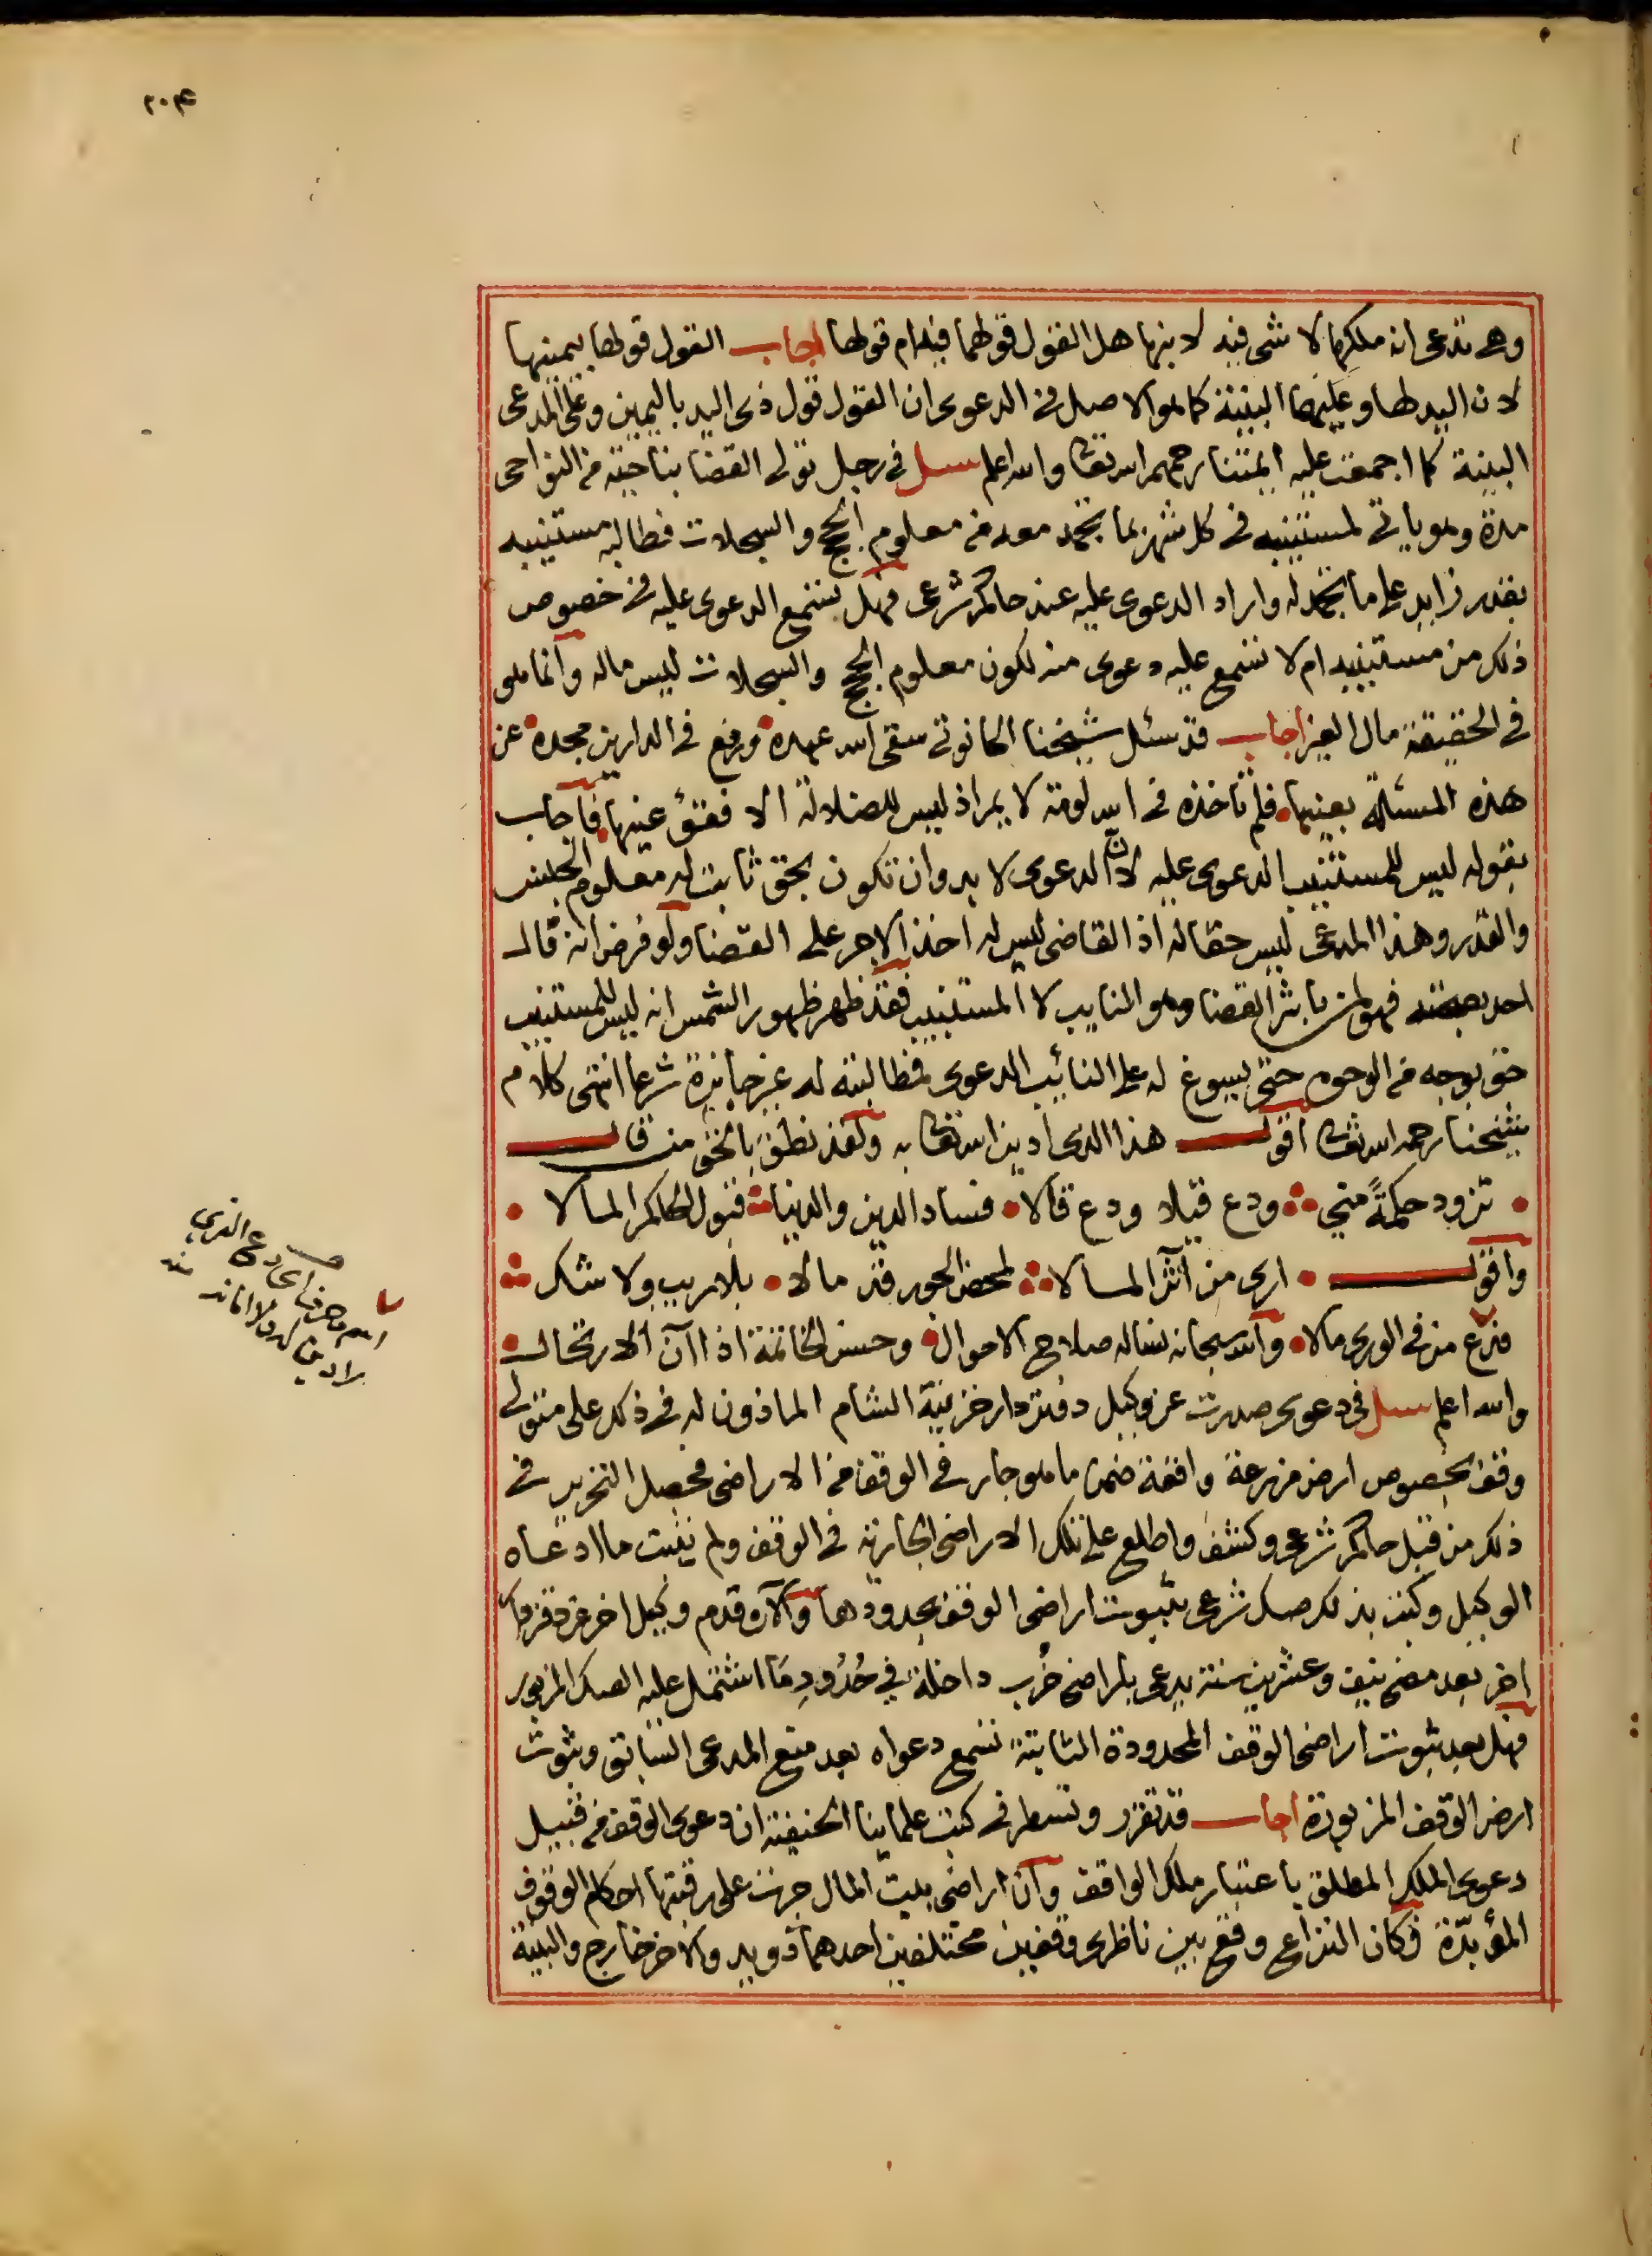 ٢٠٤
وهي تدعى انه ملكها لا شى فيه لابنها هل القول قولهما فيه ام قولها اجاب القول قولها بيمينها
لان اليد لها وعليهما البينة كما هو الاصل فى الدعوى ان القول قول ذى اليد باليمين وعلى المدعى
البينة كما اجمعت عليه ايمتنا رحمهم الله تعالى والله اعلم سئل فى رجل تولى القضا بناحية من النواحى
مدة وهو ياتى لمستنيبه فى كل شهر بما تجمد معه من معلوم الحجج والسجلات فطالبه مستنيبه
بقدر زايد على ما تجمد له واراد الدعوى عليه عند حاكم شرعى فهل تسمع الدعوى عليه فى خصوص
ذلك من مستنيبه ام لا تسمع عليه دعوى منه لكون معلوم الحجج والسجلات ليس ماله وانما هو
فى الحقيقة مال الغير اجاب قد سئل شيخنا الحانوتى سقى الله عهده ورفع فى الدارين مجده عن
هذه المسئلة بعينها فلم تاخذه فى الله لومة لايم اذ ليس للضلالة الا فقئ عينها فاجاب
بقوله ليس للمستنيب الدعوى عليه لان الدعوى لا بد وان تكون بحق ثابت له معلوم الجنس
والقدر وهذا المدعى ليس حقا له اذ القاضى ليس له اخذ الاجر على القضا ولو فرض انه قال
احد بصحته فهو لمن باشر القضا وهو النايب لا المستنيب فقد ظهر ظهور الشمس انه ليس للمستنيب
حق بوجه من الوجوه حتى يسوغ له على النائب الدعوى فمطالبته له غير جايزة شرعا انتهى كلام
شيخنا رحمه الله تعالى اقول هذا الذى ادين الله تعالى به ولقد نطق بالحق من قال
تزود حكمةً مني ودع قيلا ودع قالا فساد الدين والدنيا قبول الحاكم المالا
واقول ارى من آثر المالا لمحض الجور قد مالا بلا ريب ولا شك
فدع من فى الورى مالا والله سبحانه نساله صلاح الاحوال وحسن الخاتمة اذا آن الارتحال
والله اعلم سئل فى دعوى صدرت عن وكيل دفتردار خزينة الشام الماذون له فى ذلك على متولى
وقف بخصوص ارض مزرعة واقعة ضمن ما هو جار فى الوقف من الاراضى فحصل التحرير فى
ذلك من قبل حاكم شرعى وكشف واطلع على تلك الاراضى الجارية فى الوقف ولم يثبت ما ادعاه
الوكيل وكتب بذلك صك شرعى بثبوت اراضى الوقف بحدودها والآن قدم وكيل اخر عن دفتردار
اخر بعد مضى نيف وعشرين سنة يدعى باراضى خُرب داخلة في حُدُودِ مَا اشتمل عليه الصك المزبور
فهل بعد ثبوت اراضى الوقف المحدودة الثابتة تسمع دعواه بعد منع المدعى السابق وثبوت
ارض الوقف المزبورة اجاب قد تقرر وتسطر فى كتب علماينا الحنفية ان دعوى الوقف من قبيل
دعوى الملك المطلق باعتبار ملك الواقف وان اراضى بيت المال جرت على رقبتها احكام الوقوف
المؤبدّة فكان النزاع وقع بين ناظرى وقفين مختلفين احدهما ذو يد والاخر خارج والبينة